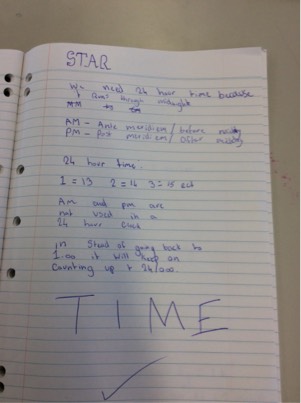 STAR
We need 24 hour time because
through midnight
AM - Ante meridiem / before
PM - Post meridiem /
24 hour time.
1 = 13 2 = 14 3 = 15 ect
AM and pm are
not used in a
24 hour clock
in Stead of going back to
1.00 it will keep on
Counting up to
TIME